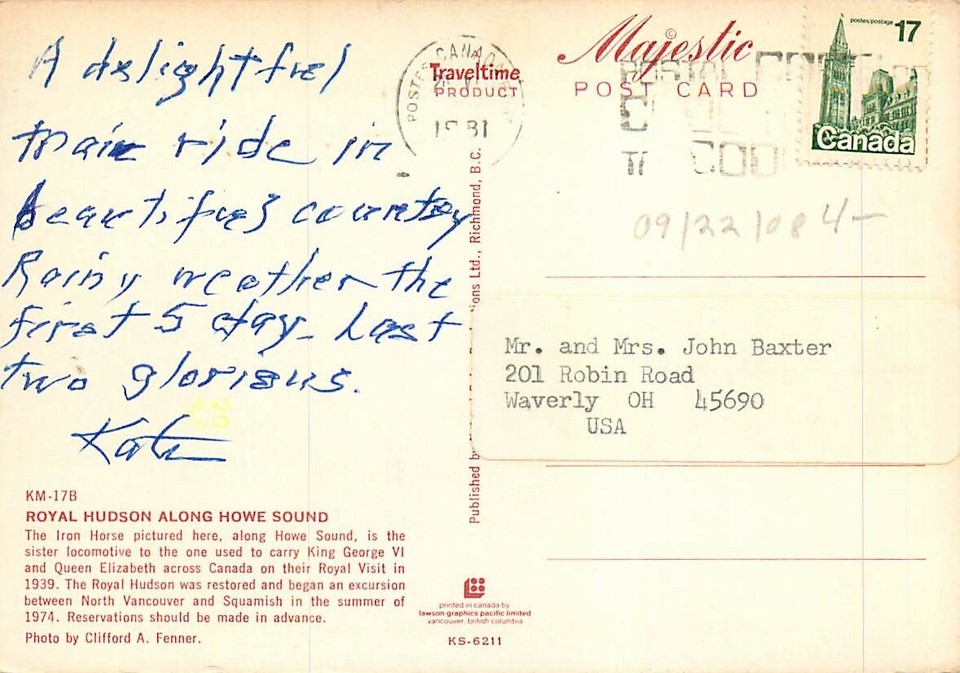 A delightful
train ride in
beautiful country
Rainy weather the
first 5 day. Last
two glorious.
KM-17B
ROYAL HUDSON ALONG HOWE SOUND
The Iron Horse pictured here, along Howe Sound, is the
sister locomotive to the one used to carry King George VI
and Queen Elizabeth across Canada on their Royal Visit in
1939. The Royal Hudson was restored and began an excursion
between North Vancouver and Squamish in the summer of
1974. Reservations should be made in advance.
Photo by Clifford A. Fenner.
POSTES CANADA
1981
Traveltime
PRODUCT
Published by
ions Ltd., Richmond, B.C.
printed in canada by
lawson graphics pacific limited
vancouver, british columbia
KS-6211
Majestic
POST CARD
postes/postage 17
Canada
09/22/08 4-
Mr. and Mrs. John Baxter
201 Robin Road
Waverly OH 45690
USA